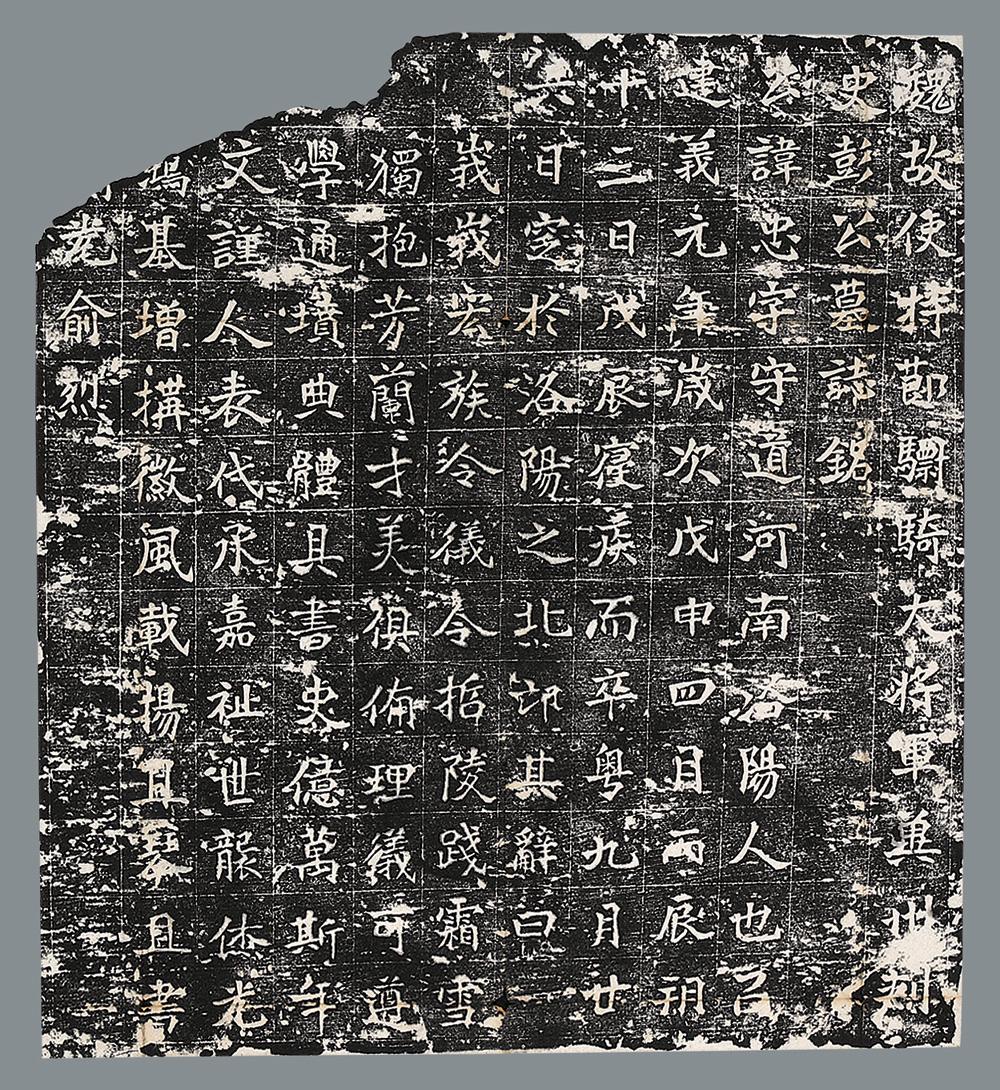 魏故使持節驃騎大將軍冀州刺
史彭公墓誌銘
公諱忠字守道河南洛陽人也㠯
建義元年歲次戊申四月丙辰朔
十三日戊辰寑疾而卒粵九月廿
六日窆於洛陽之北邙其辭曰
峩峩宏族玲儀令哲陵踐霜雪
獨抱芳蘭才美俱備理儀可遵
學通墳典體具書史億萬斯年
文謹人表代承嘉祉世龍休光
鴻基增構徽風載揚且
且書
光俞烈